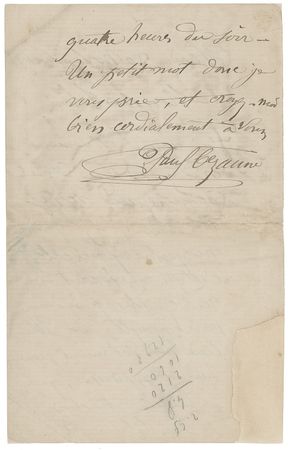 quatre heures du soir —
Un petit mot donc je
vous prie, et croyez-moi
bien cordialement à vous
Paul Cezanne
2120